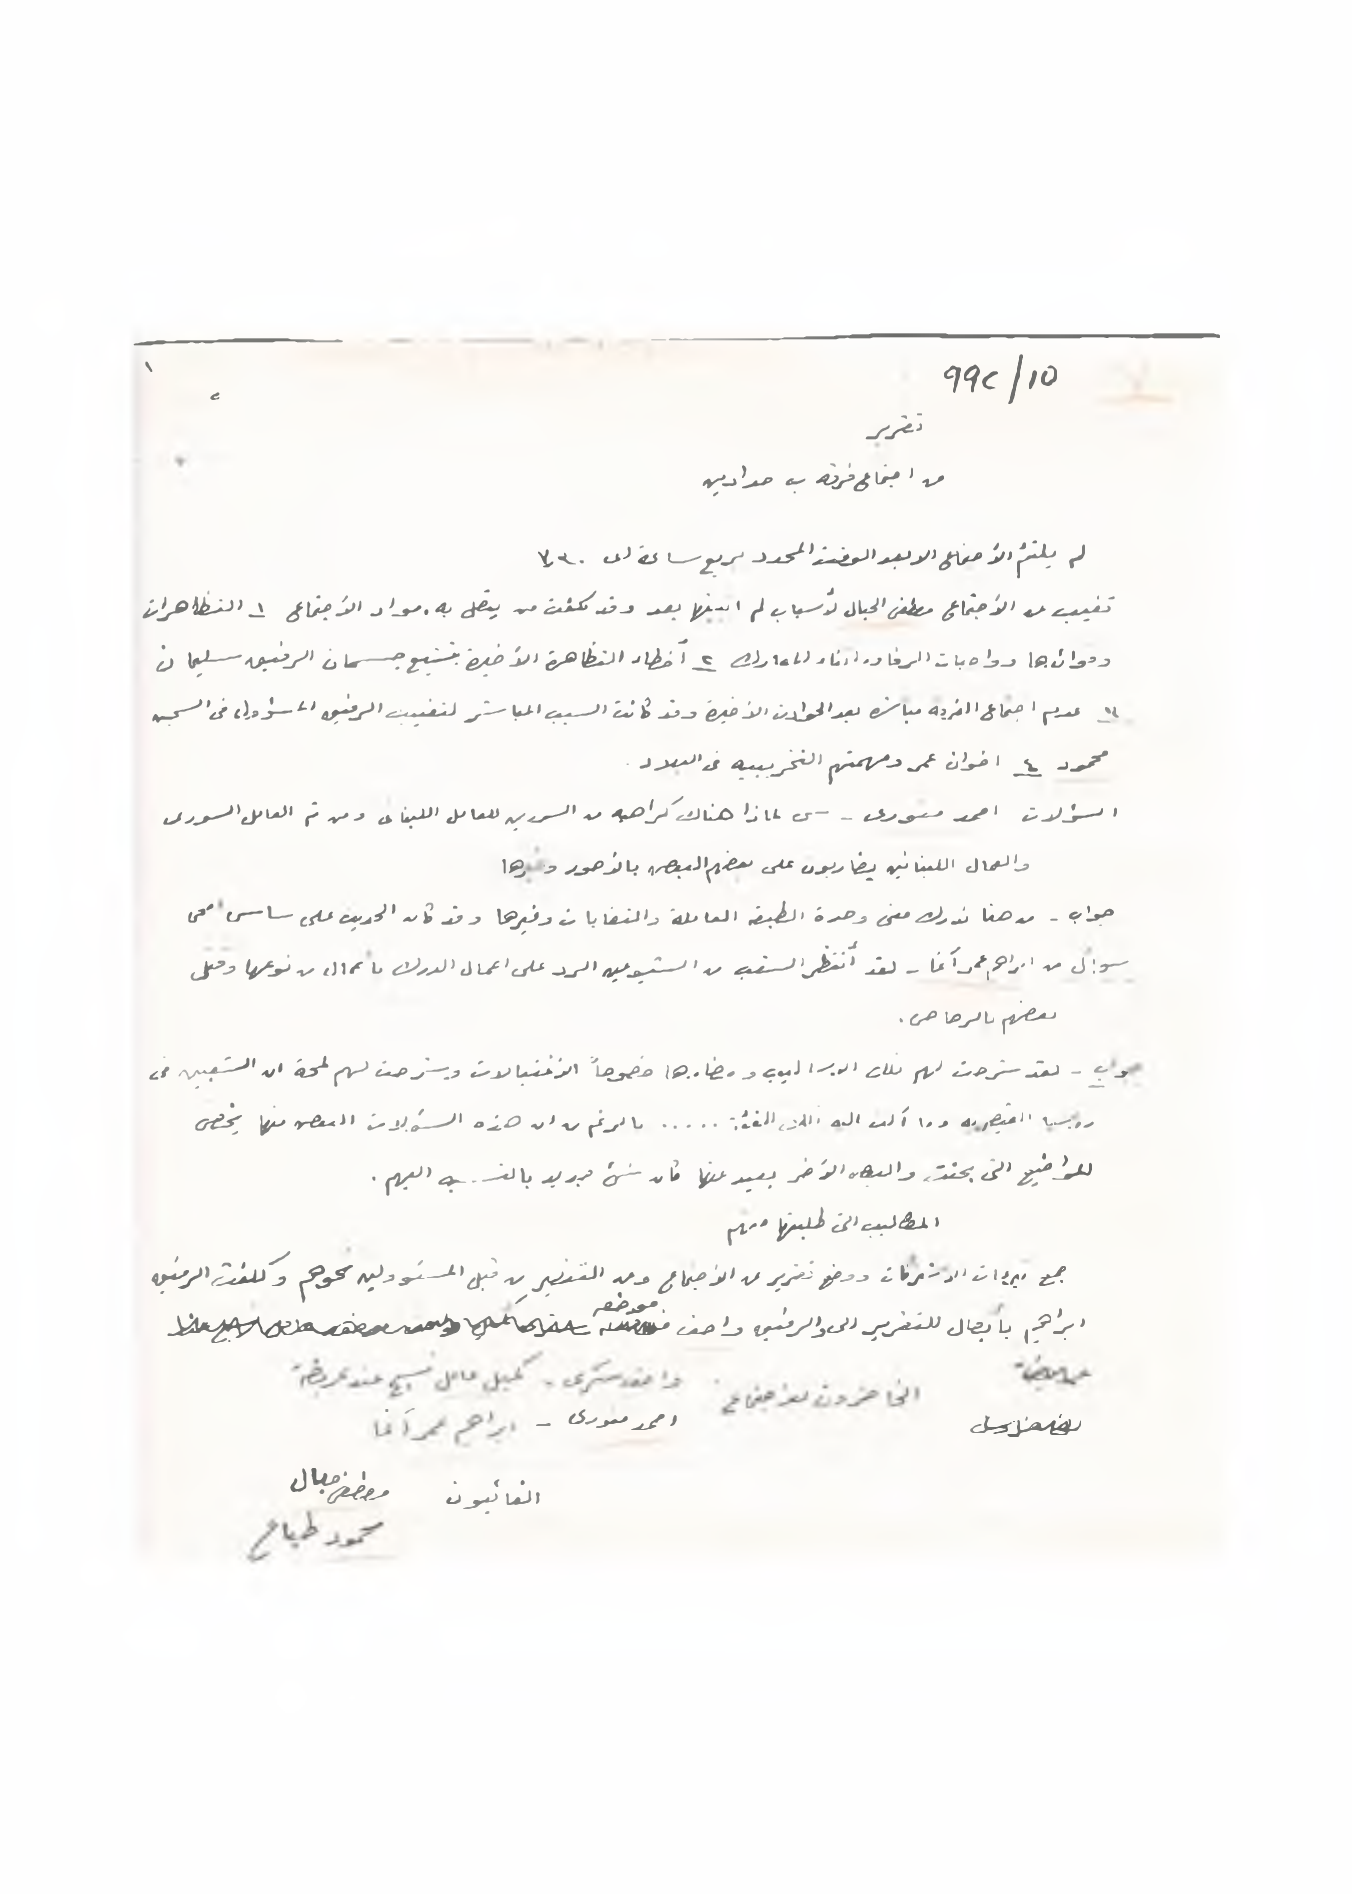 ٩٩٢/١٥
١
تقرير
من اجتماع فرقة ب حدادين
لم يلتئم الأجتماع الا بعد الوقت المحدد بربع ساعة اى ٧،٣٠
تغيب عن الأجتماع مصطفى الجبال لأسباب لم ابينها بعد وقد كلفت من يتصل به. مواد الأجتماع ١ التظاهرات
وفوائدها وواجبات الرفاق اثناء المعارك ٢ أخطاء التظاهرة الأخيرة بتشييع جسمان الرفيق سليمان
٣ عدم اجتماع الفرقة مباشرة بعد الحوادث الأخيرة وقد كانت السبب المباشر لتغييب الرفيق المسؤول فى السجن
محمود ٤ اخوان عمر ومهمتهم التخريبيه فى البلاد.
السؤلات احمد منورى - س لماذا هناك كراهيه من السورين للعامل اللبنانى ومن ثم العامل السورى
والعمال اللبنانين يضاربون على بعضهم البعض بالأجور وغيرها
جواب - من هنا ندرك معنى وحدة الطبقة العاملة والنقابات وغيرها وقد كان الحديث على ساسى
سوأل من ابراهيم عمر آغا - لقد أنتظر الشعب من الشيوعين الرد على اعمال الدرك بأعمال من نوعها وقتلى
بعضهم بالرصاص.
جواب - لقد شرحت لهم تلك الاساليب ومضارها خصوصاً الأغتيالات وشرحت لهم لمحة عن الشعبين فى
روسيا القيصريه وما آلت اليه تلك الفئة ..... بالرغم من ان هذه السؤلات البعض منها يخص
المواضيع التى بحثت والبعض الأخر بعيد عنها كان شئ جديد بالنسبه اليهم.
المطاليب التى طلبتها منهم
جمع تبرعات الاشتراكات ووضع تقرير عن الأجتماع وعن التقصير من قبل المسئوولين نحوهم وكلفت الرفيق
ابراهيم بأيصال التقرير الى الرفيق واصف
الحاضرون للأجتماع واصف سكرى - كميل عامل نسيج
احمد منورى - ابراهيم عمر آغا
الغائبون مصطفى جبال
محمود طباع